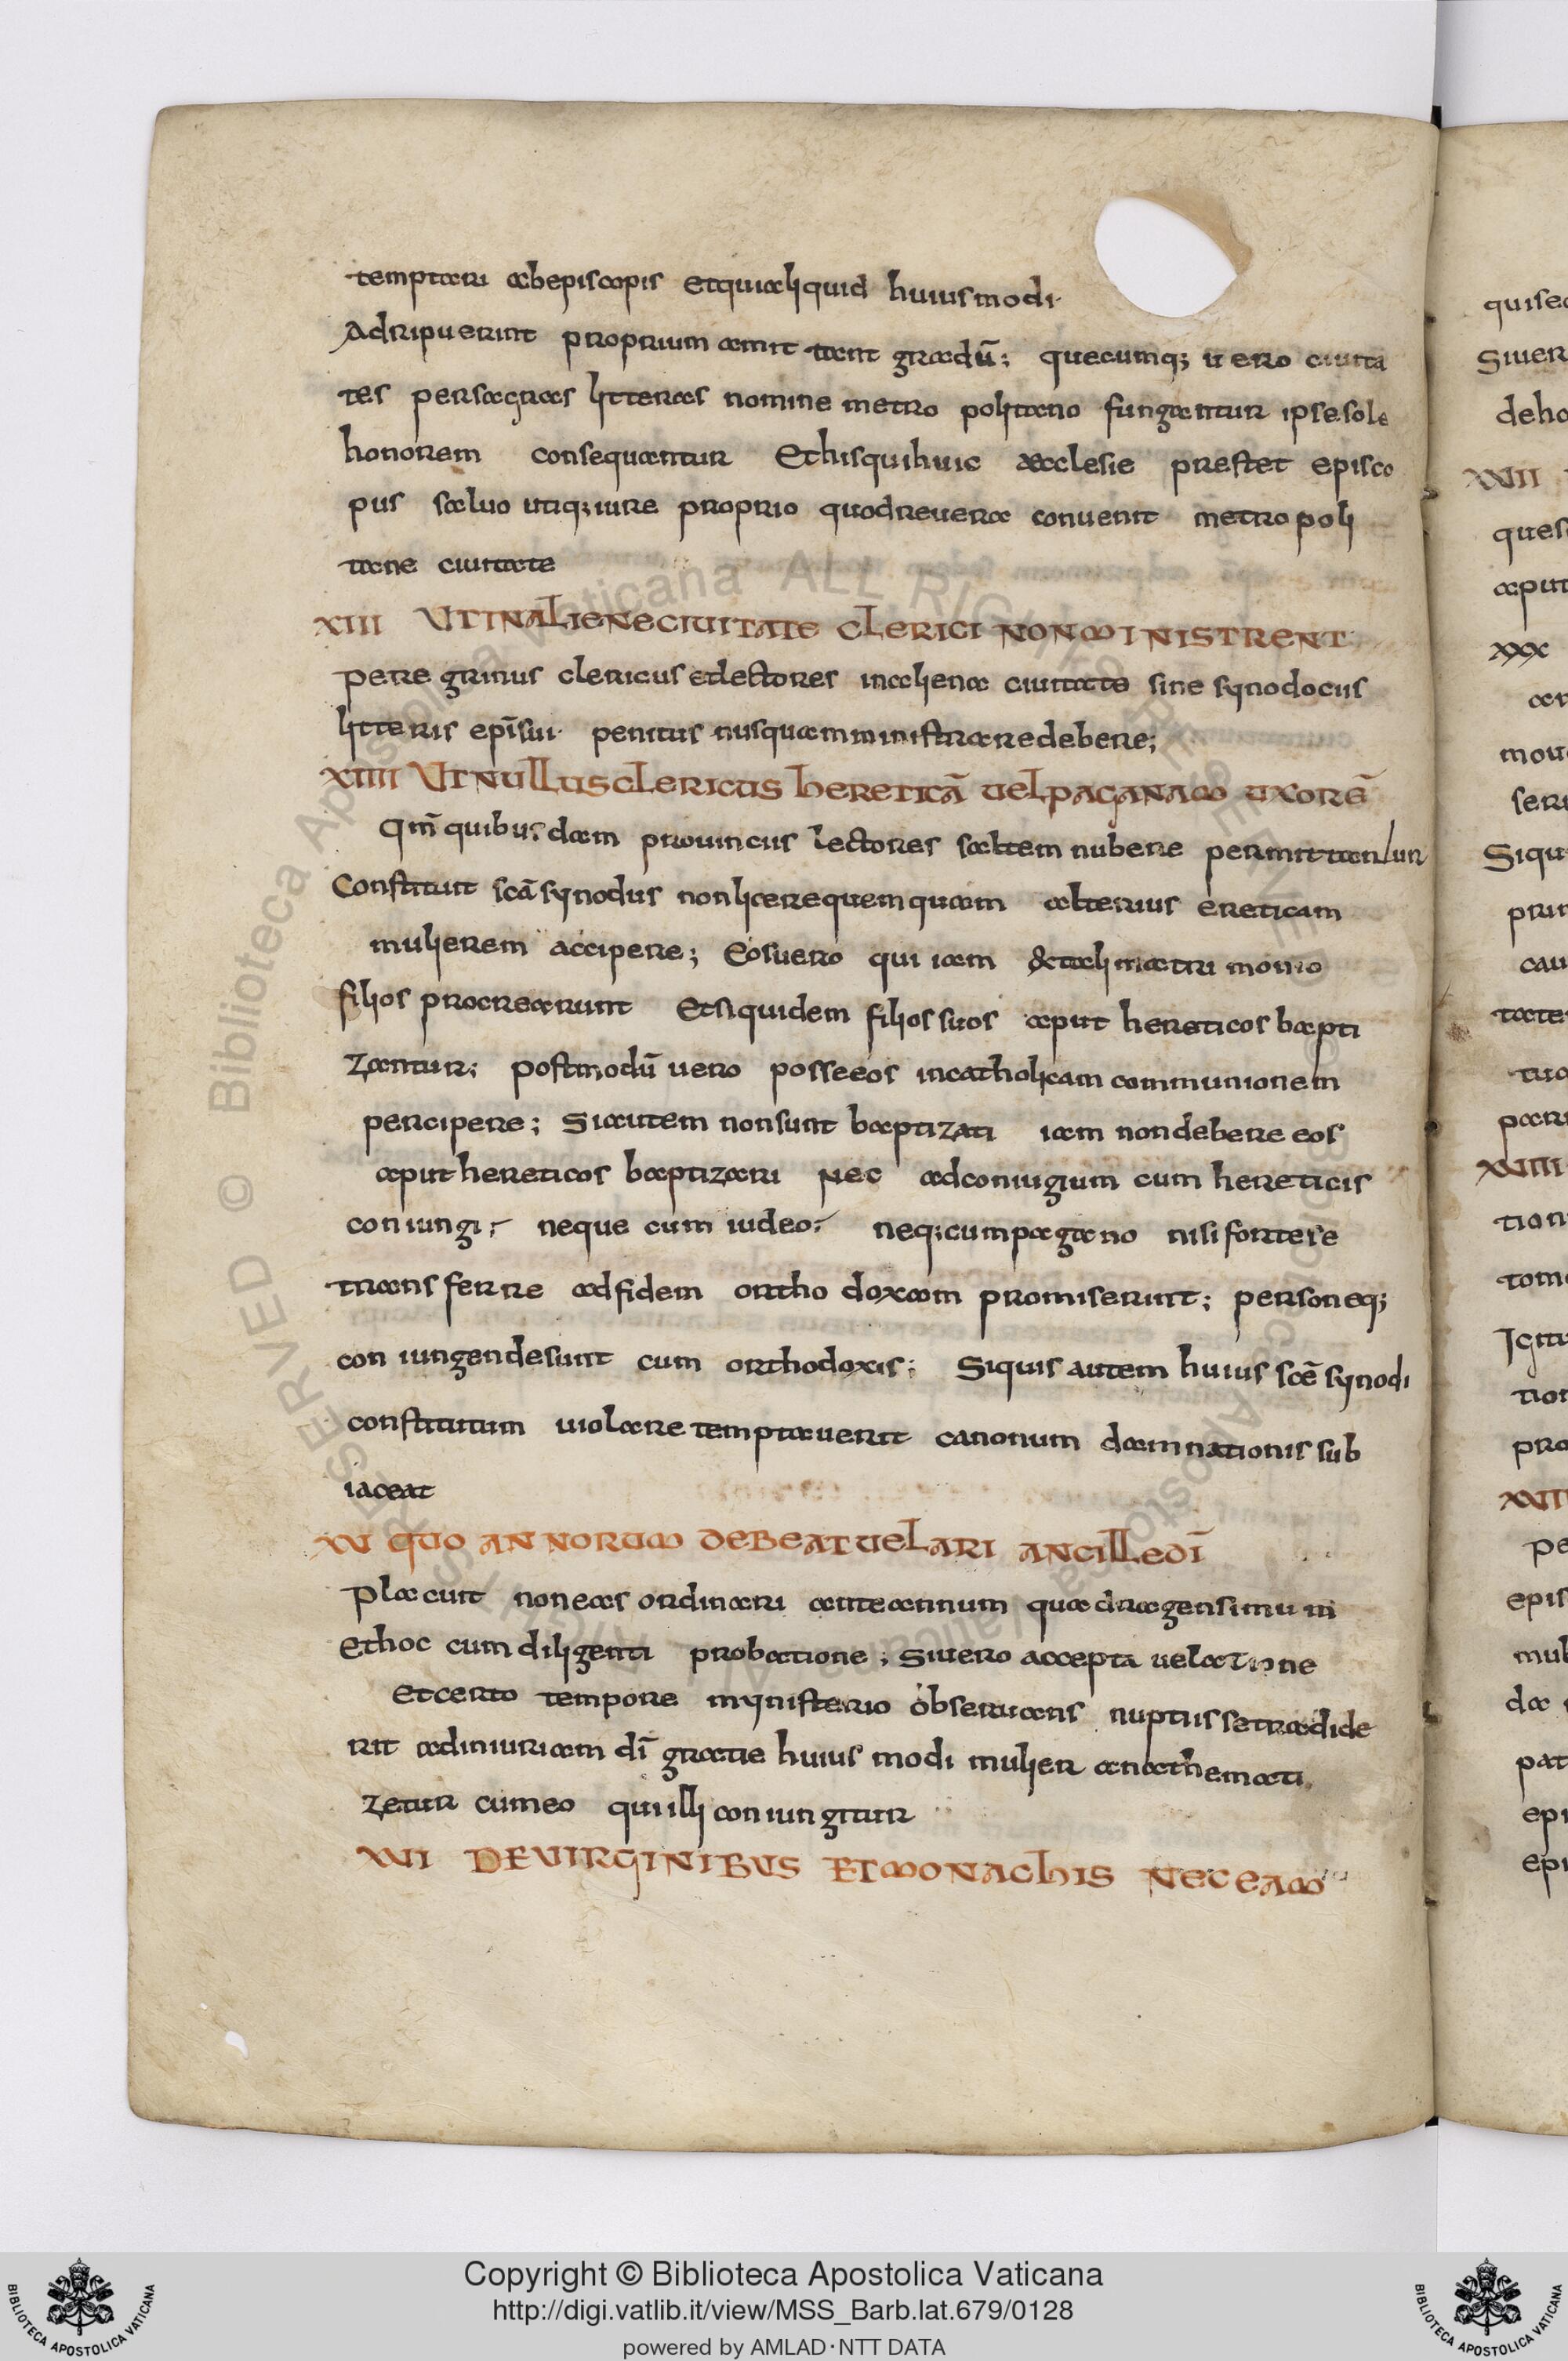 temptari abepiscopis etquialiquid huiusmodi·
Adripuerint proprium amit tant gradū; quecumq; uero ciuita
tes persagras litteras nomine metro politano fungantur ipse sole
honorem consequantur Ethisquihuic aecclesie prestet episco
pus saluo utiq; iure proprio quodreuera conuenit metropoli
tane ciuitate
XIII UTINALIENECIUITATE CLERICI NONMINISTRENT
Pere grinus clericus etlectores inaliena ciuitate sine synodociis
litteris ep̄isui· penitus nusquamministraredebere;
XIIII UTNULLUSCLERICUS HERETICĀ UELPAGANAM UXORĒ
Qm̄ quibusdam prouinciis lectores saltem nubere permittantur
Constituit scā synodus nonlicerequemquam alterius ereticam
mulierem accipere; Eosuero qui iam &tali matri monio
filios procrearunt Etsiquidem filios suos aput hereticos bapti
zantur; postmodū uero posseeos incatholicam communionem
percipere; Siautem nonsunt baptizati iam nondebere eos
aput hereticos baptizari nec adconiugium cum hereticis
coniungi; neque cum iudeo; neq; cumpagano nisi fortese
trans ferre adfidem ortho doxam promiserint; personeq;
con iungendesunt cum orthodoxis; Siquis autem huius scē synodi
constitutum uiolare temptauerit canonum damnationis sub
iaceat
XV QUO ANNORUM DEBEATUELARI ANCILLEDĪ
Placuit noneas ordinari anteannum quadragensimum
Ethoc cum diligenti probatione; Siuero accepta uelatione
Etcerto tempore mynisterio observans nuptiis setradide
rit adiniuriam dī gratie huius modi mulier anathemati
zetur cumeo quiilli coniungitur
XVI DEVIRGINIBUS ETMONACHIS NECEAM
quise
Siuer
deho
XXVII
ques
aput
XXX
mou
seri
Siqu
prin
cau
tate
tuo
pari
XXVIIII
tion
tom
Igitu
tion
pro
XXVII
pe
epis
mul
da
pat
epi
epi
Copyright © Biblioteca Apostolica Vaticana
http://digi.vatlib.it/view/MSS_Barb.lat.679/0128
powered by AMLAD·NTT DATA
BIBLIOTECA APOSTOLICA VATICANA
BIBLIOTECA APOSTOLICA VATICANA